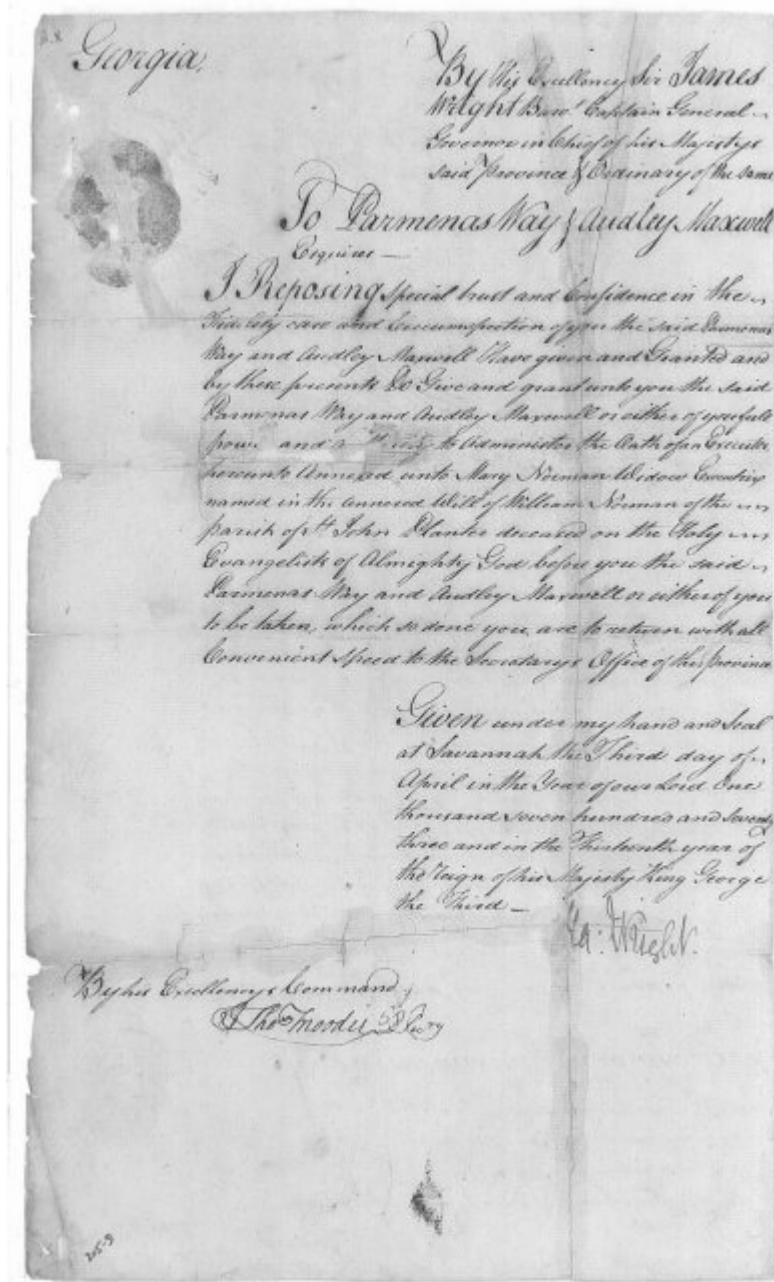 Georgia.
By His Excellency Sir James
Wright Baro.t Captain General
Governor in Chief of his Majestys
said Province & Ordinary of the same
To Parmenas Way & Audley Maxwell
Esquires
I Reposing special trust and Confidence in the
Fidelity care and Circumspection of you the said Parmenas
Way and Audley Maxwell Have given and Granted and
by these presents Do Give and grant unto you the said
Parmenas Way and Audley Maxwell or either of you full
power and to Administer the Oath of an Executor
hereunto Annexed unto Mary Norman Widow Executrix
named in the annexed Will of William Norman of the
parish of St John Planter deceased on the Holy
Evangelists of Almighty God before you the said
Parmenas Way and Audley Maxwell or either of you
to be taken, which so done you are to return with all
Convenient speed to the Secretarys Office of this province
Given under my hand and Seal
at Savannah the Third day of
April in the Year of our Lord One
thousand seven hundred and seventy
three and in the Thirteenth year of
the reign of his Majesty King George
the Third
Ja: Wright.
By his Excellencys Command
Thos Moodie D Secry
205-B